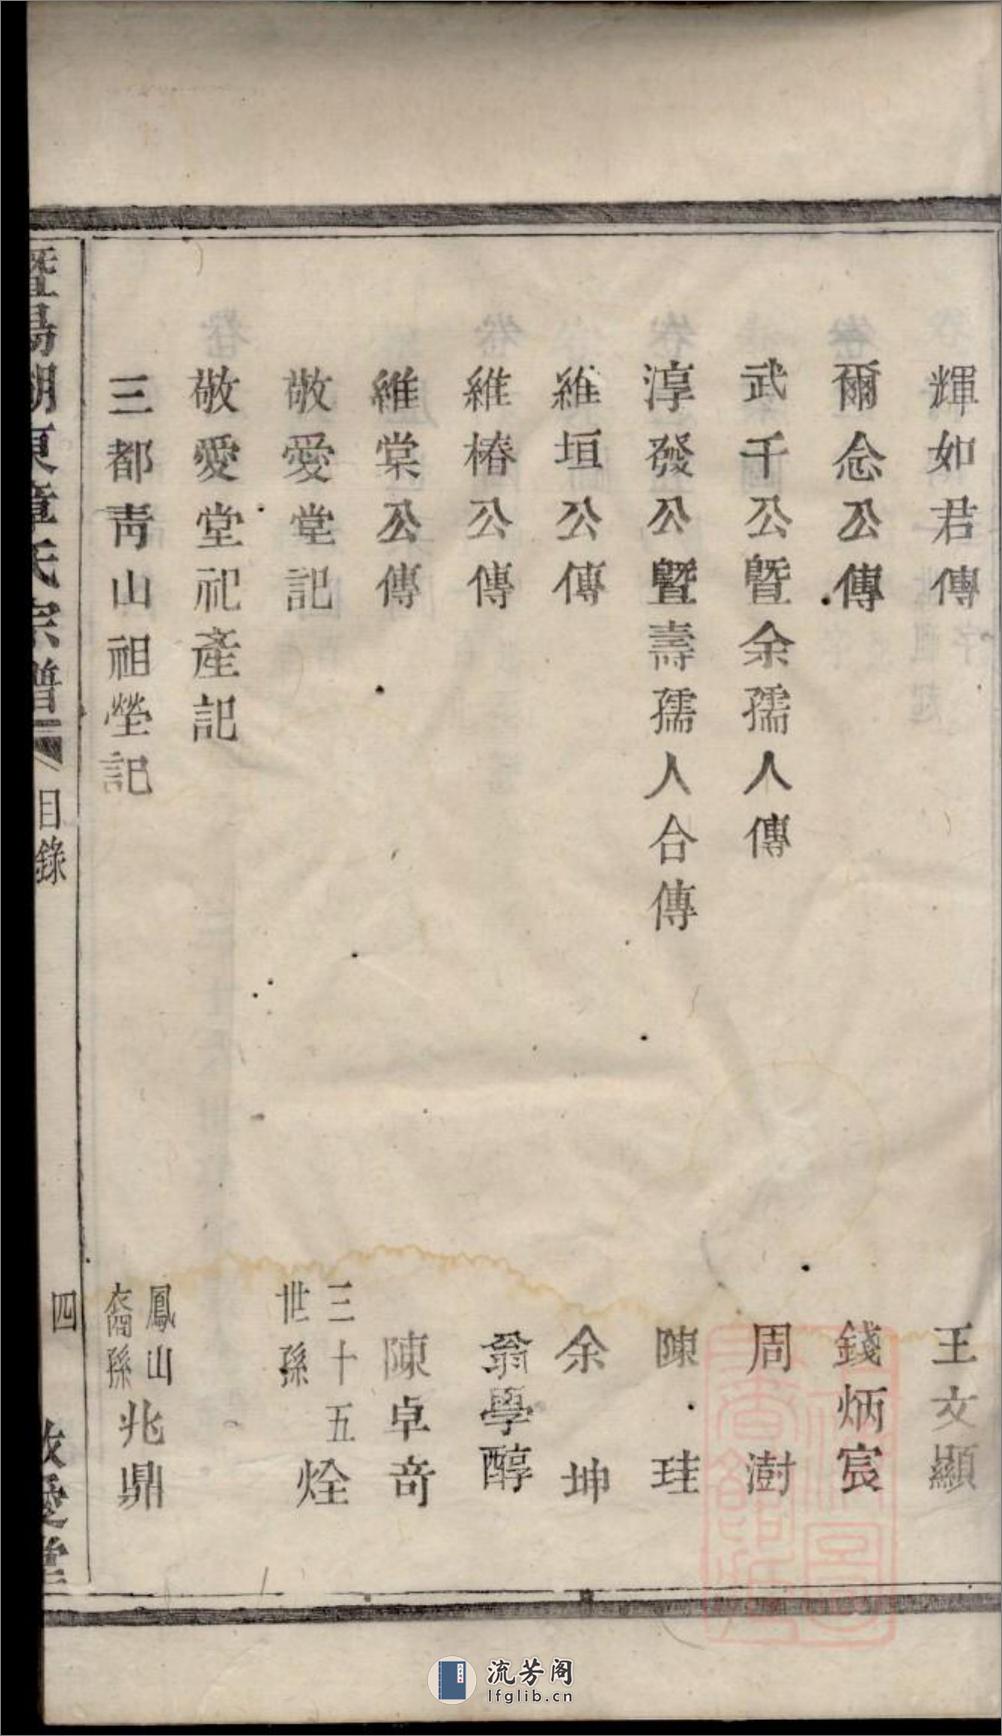 輝如君傳 王文顯
爾念公傳 錢炳宸
武千公暨余孺人傳 周澍
淳發公暨壽孺人合傳 陳珪
維垣公傳 余坤
維椿公傳 翁學醇
維棠公傳 陳卓奇
敬愛堂記 三十五世孫 烇
敬愛堂祀產記
三都靑山祖塋記 鳳山裔孫 兆鼎
暨陽湖東章氏宗譜 目錄 四 敬愛堂
流芳阁
lfglib.cn